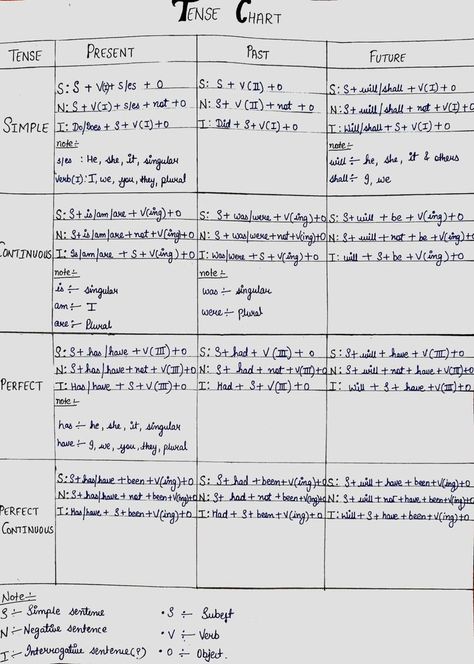 TENSE CHART
TENSE
PRESENT
PAST
FUTURE
SIMPLE
S: S + V(I) + s/es + O
N: S + V(I) + s/es + not + O
I: Do/Does + S + V(I) + O
note:-
s/es : He, she, it, singular
verb(I): I, we, you, they, plural
S: S + V(II) + O
N: S + V(II) + not + O
I: Did + S + V(I) + O
S: S + will/shall + V(I) + O
N: S + will/shall + not + V(I) + O
I: Will/shall + S + V(I) + O
note:-
will :- he, she, it & others
shall :- I, we
CONTINUOUS
S: S + is/am/are + V(ing) + O
N: S + is/am/are + not + V(ing) + O
I: Is/am/are + S + V(ing) + O
note:-
is :- singular
am :- I
are :- Plural
S: S + was/were + V(ing) + O
N: S + was/were + not + V(ing) + O
I: Was/were + S + V(ing) + O
note:-
was :- singular
were :- plural
S: S + will + be + V(ing) + O
N: S + will + not + be + V(ing) + O
I: will + S + be + V(ing) + O
PERFECT
S: S + has/have + V(III) + O
N: S + has/have + not + V(III) + O
I: Has/have + S + V(III) + O
note:-
has :- he, she, it, singular
have :- I, we, you, they, plural
S: S + had + V(III) + O
N: S + had + not + V(III) + O
I: Had + S + V(III) + O
S: S + will + have + V(III) + O
N: S + will + not + have + V(III) + O
I: will + S + have + V(III) + O
PERFECT
CONTINUOUS
S: S + has/have + been + V(ing) + O
N: S + has/have + not + been + V(ing) + O
I: Has/have + S + been + V(ing) + O
S: S + had + been + V(ing) + O
N: S + had + not + been + V(ing) + O
I: Had + S + been + V(ing) + O
S: S + will + have + been + V(ing) + O
N: S + will + not + have + been + V(ing) + O
I: Will + S + have + been + V(ing) + O
Note:-
S :- Simple sentence
N :- Negative sentence
I :- Interrogative sentence(?)
• S :- Subejt
• V :- Verb
• O :- Object.